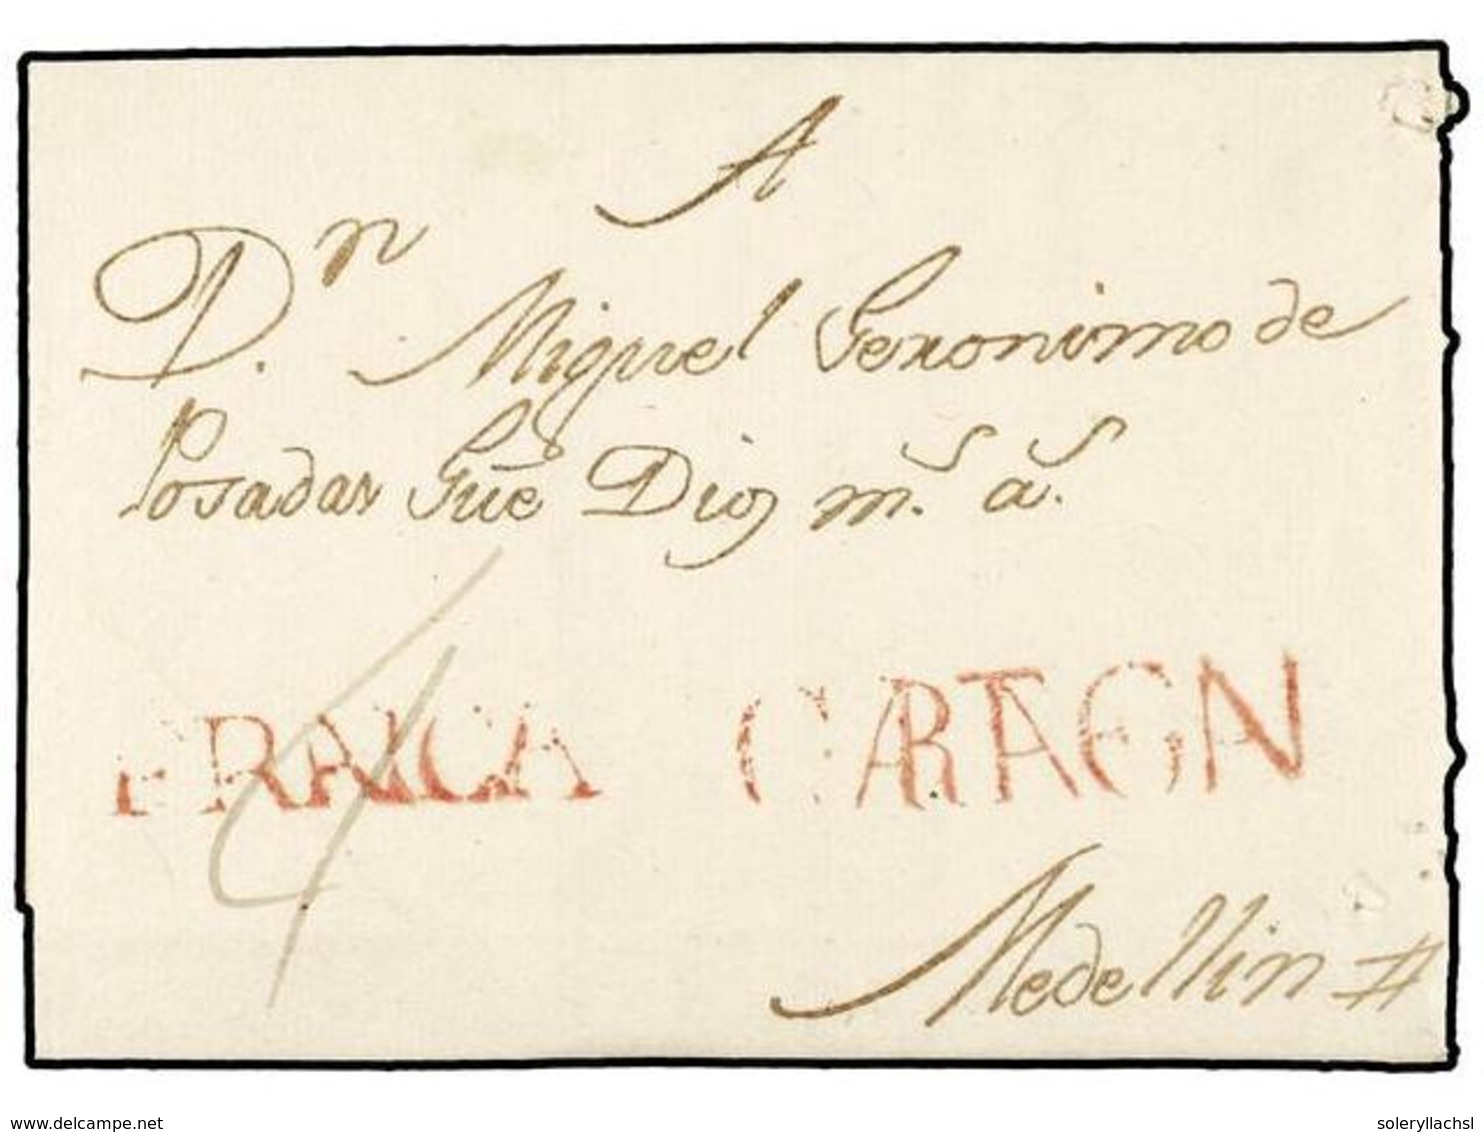 A
Dn. Miguel Geronimo de
Posadas Gūe Dios m.s a.s
4
FRANCA CARTAGN
Medellin #
delcampe.net
soleryllachsl